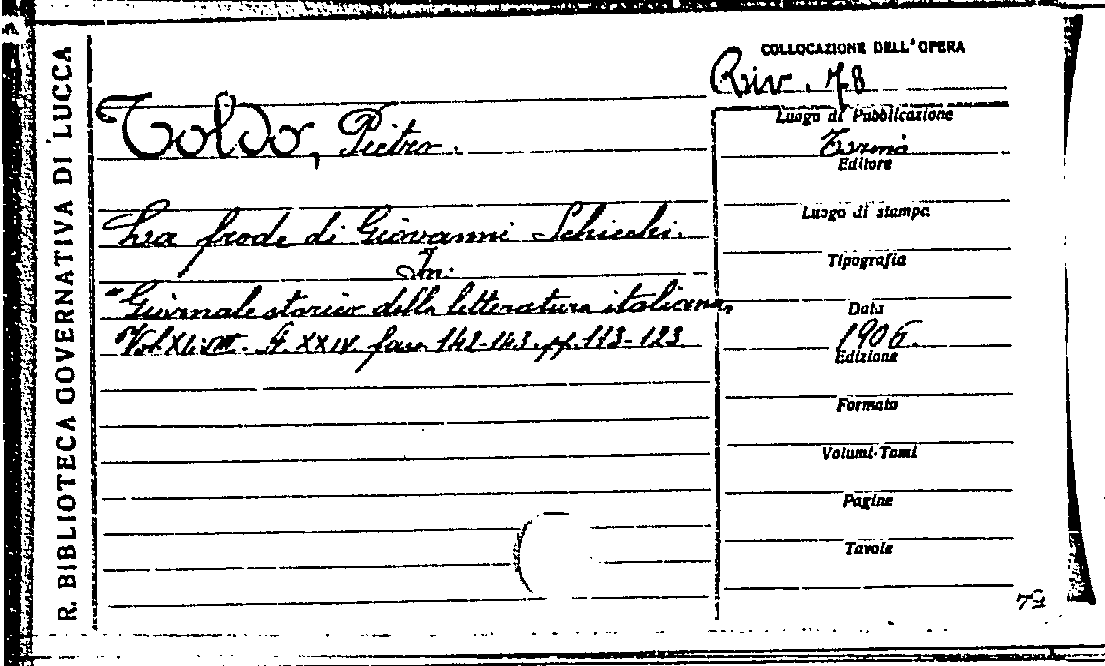 R. BIBLIOTECA GOVERNATIVA DI LUCCA
COLLOCAZIONE DELL'OPERA
Riv. 78
Toldo, Pietro.
Luogo di Pubblicazione
Torino
Editore
La frode di Giovanni Schicchi.
Luogo di stampa
In:
Tipografia
"Giornale storico della letteratura italiana,
Data
Vol XLVIII. A. XXIV. fasc. 142-143. pp. 113-123
1906.
Edizione
Formato
Volumi-Tomi
Pagine
Tavole